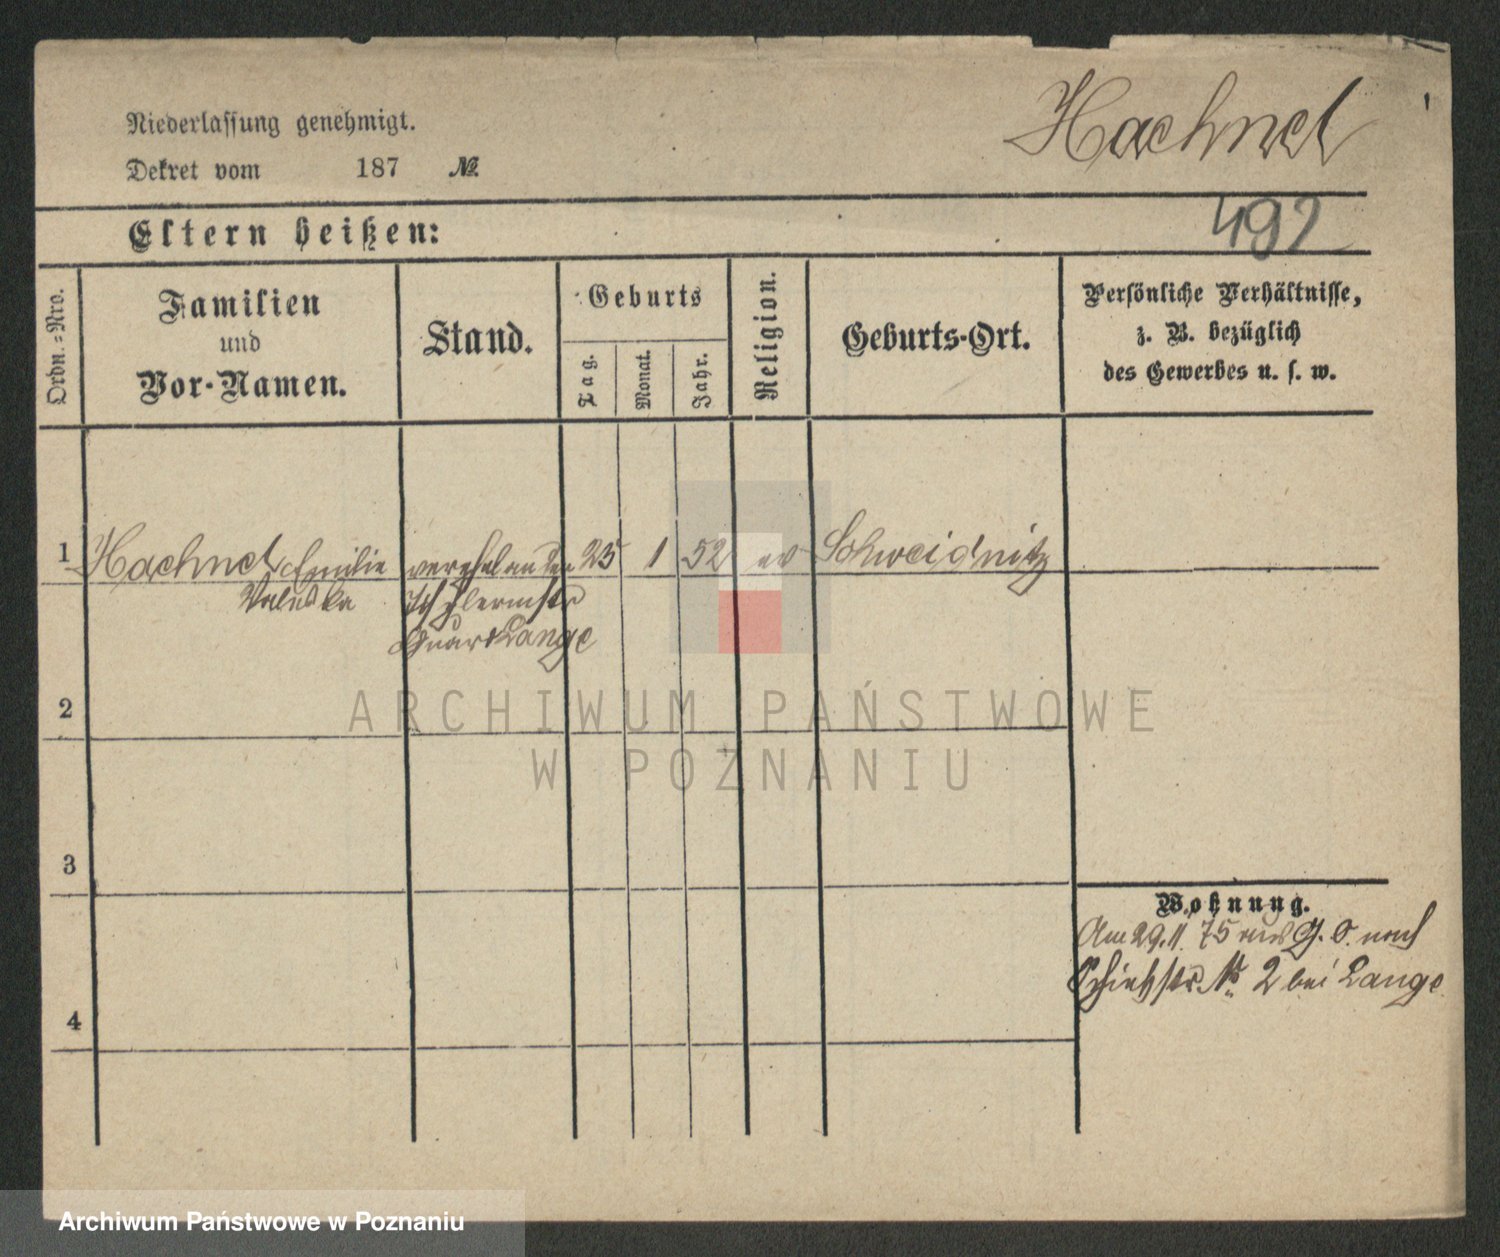 Niederlassung genehmigt.
Haehnel
Dekret vom 187 №
Eltern heißen:
492
Ordn.=Nro.
Familien
und
Vor-Namen.
Stand.
Geburts
Tag.
Monat.
Jahr.
Religion.
Geburts-Ort.
Persönliche Verhältnisse,
z. B. bezüglich
des Gewerbes u. s. w.
1 Haehnel Emilie verehel an den 25 1 52 ev Schweidnitz
Valeska
Lange
2
ARCHIWUM PAŃSTWOWE
W POZNANIU
3
Wohnung.
Am 29.11 75 aus G. S. nach
4
Schiehstr № 2 bei Lange
Archiwum Państwowe w Poznaniu